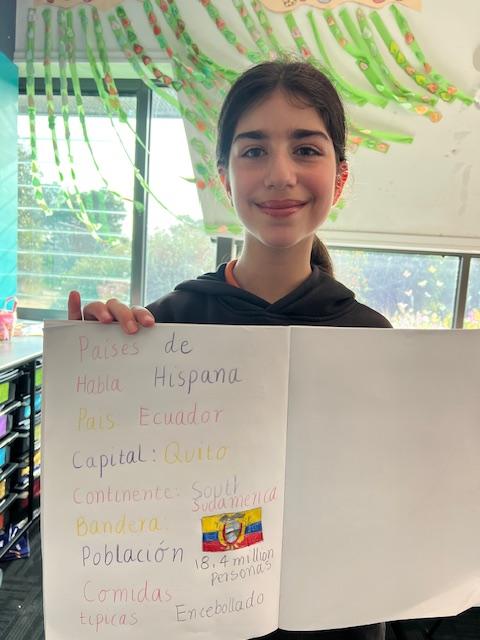 Países de
Habla Hispana
País Ecuador
Capital: Quito
Continente: South
Sudamerica
Bandera:
Población 18.4 million
Personas
Comidas
típicas Encebollado